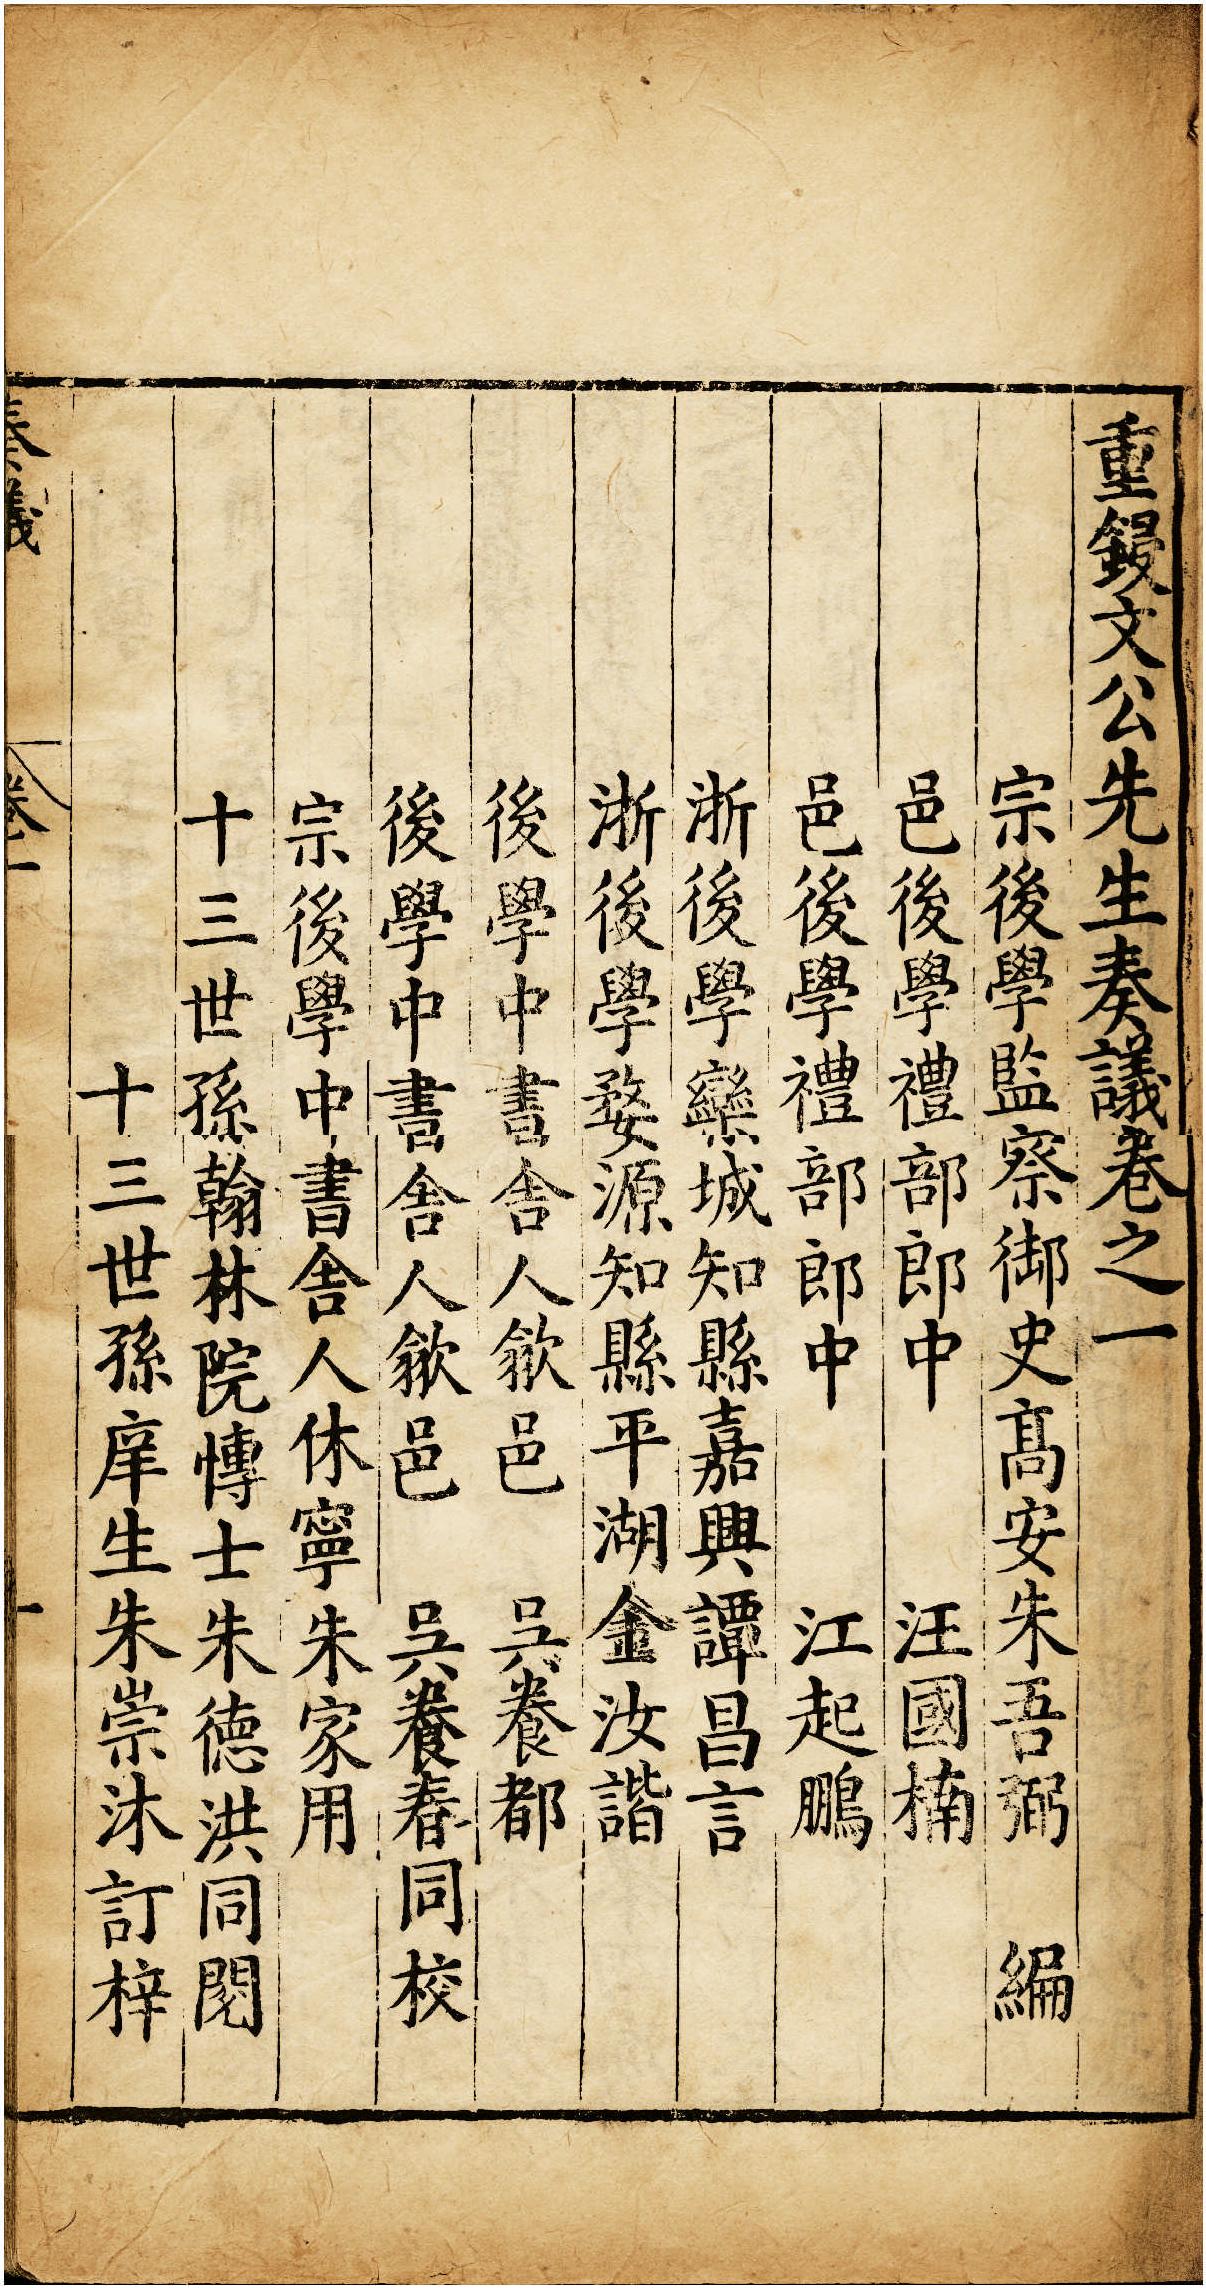 重鋟文公先生奏議卷之一
宗後學監察御史高安朱吾弼 編
邑後學禮部郎中 汪國楠
邑後學禮部郎中 江起鵬
浙後學欒城知縣嘉興譚昌言
浙後學婺源知縣平湖金汝諧
後學中書舍人歙邑 吳養都
後學中書舍人歙邑 吳養春同校
宗後學中書舍人休寧朱家用
十三世孫翰林院博士朱德洪同閱
十三世孫庠生朱崇沐訂梓
奏議 卷一 一